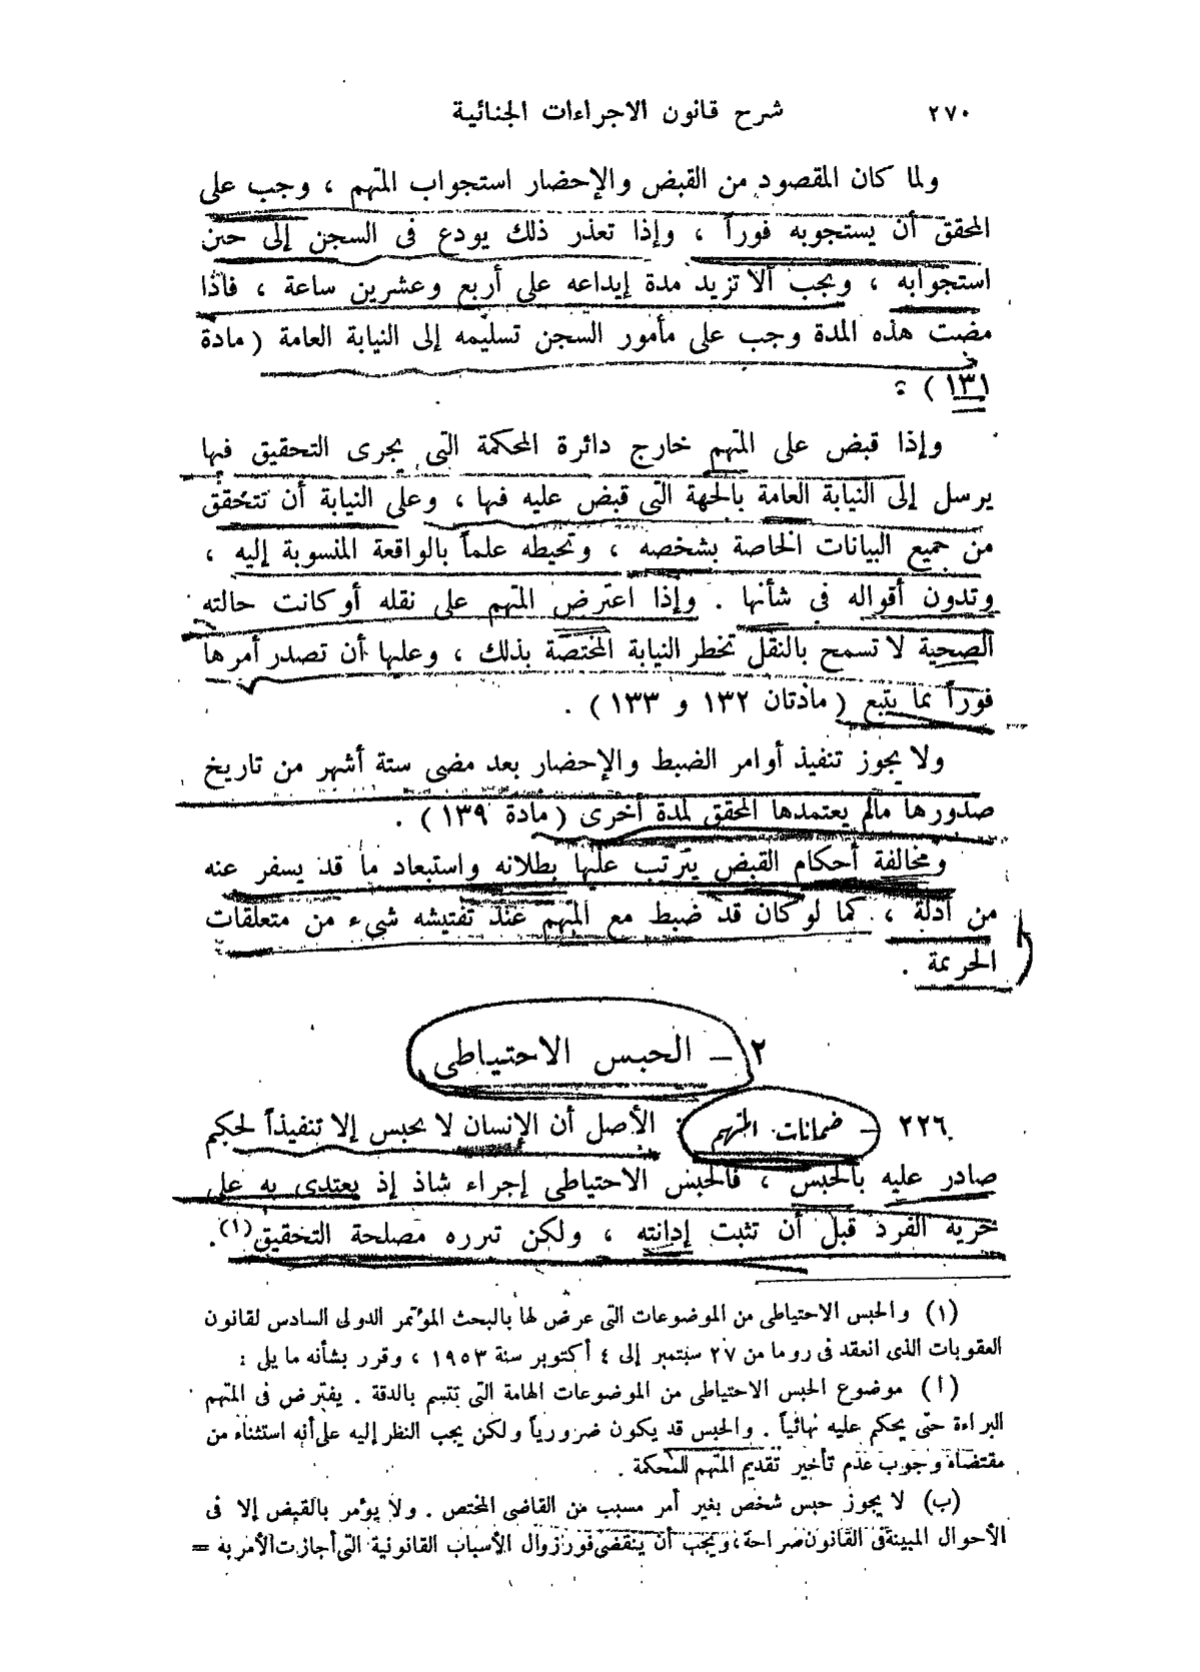 ٢٧٠ شرح قانون الاجراءات الجنائية
ولما كان المقصود من القبض والإحضار استجواب المتهم ، وجب على
المحقق أن يستجوبه فوراً ، وإذا تعذر ذلك يودع فى السجن إلى حين
استجوابه ، ويجب ألا تزيد مدة إيداعه على أربع وعشرين ساعة ، فاذا
مضت هذه المدة وجب على مأمور السجن تسليمه إلى النيابة العامة ( مادة
١٣١ ) :
وإذا قبض على المتهم خارج دائرة المحكمة التى يجرى التحقيق فيها
يرسل إلى النيابة العامة بالجهة التى قبض عليه فيها ، وعلى النيابة أن تتحقق
من جميع البيانات الخاصة بشخصه ، وتحيطه علماً بالواقعة المنسوبة إليه ،
وتدون أقواله فى شأنها . وإذا اعترض المتهم على نقله أو كانت حالته
الصحية لا تسمح بالنقل تخطر النيابة المختصة بذلك ، وعليها أن تصدر أمرها
فوراً بما يتبع ( مادتان ١٣٢ و ١٣٣ ) .
ولا يجوز تنفيذ أوامر الضبط والإحضار بعد مضى ستة أشهر من تاريخ
صدورها مالم يعتمدها المحقق لمدة أخرى ( مادة ١٣٩ ) .
ومخالفة أحكام القبض يترتب عليها بطلانه واستبعاد ما قد يسفر عنه
من أدلة ، كما لو كان قد ضبط مع المتهم عند تفتيشه شىء من متعلقات
الجريمة .
٢ – الحبس الاحتياطى
٢٢٦ – ضمانات المتهم : الأصل أن الإنسان لا يحبس إلا تنفيذاً لحكم
صادر عليه بالحبس ، فالحبس الاحتياطى إجراء شاذ إذ يعتدى به على
حرية الفرد قبل أن تثبت إدانته ، ولكن تبرره مصلحة التحقيق(١).
(١) والحبس الاحتياطى من الموضوعات التى عرض لها بالبحث المؤتمر الدولى السادس لقانون
العقوبات الذى انعقد فى روما من ٢٧ سبتمبر إلى ٤ أكتوبر سنة ١٩٥٣ ، وقرر بشأنه ما يلى :
(أ) موضوع الحبس الاحتياطى من الموضوعات الهامة التى تتسم بالدقة . يفترض فى المتهم
البراءة حتى يحكم عليه نهائياً . والحبس قد يكون ضرورياً ولكن يجب النظر إليه على أنه استثناء من
مقتضاه وجوب عدم تأخير تقديم المتهم للمحكمة .
(ب) لا يجوز حبس شخص بغير أمر مسبب من القاضى المختص . ولا يؤمر بالقبض إلا فى
الأحوال المبينة فى القانون صراحة ، ويجب أن ينقضى فور زوال الأسباب القانونية التى أجازت الأمر به =